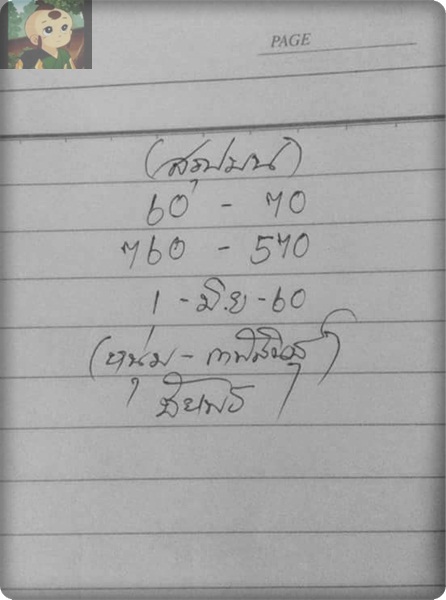 PAGE
(สรุปบน)
60 - 70
760 - 570
1 - มิ.ย - 60
(หนุ่ม - กาฬสินธุ์)